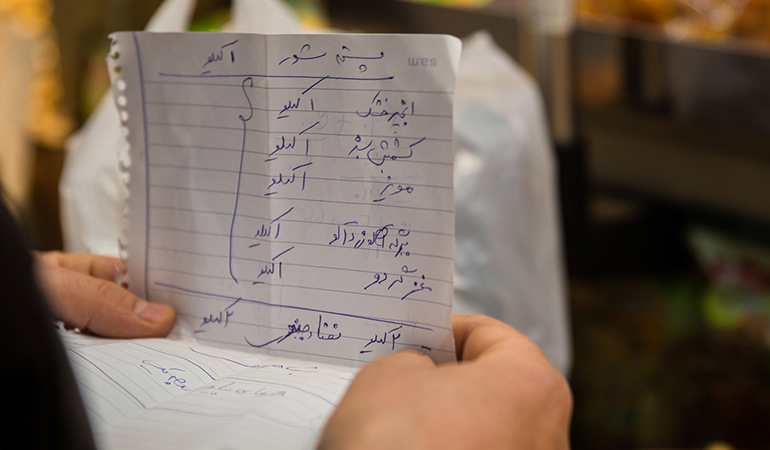 پسته شور ۱ کیلو
انجیر خشک ۱ کیلو
کشمش سبز ۱ کیلو
مویز ۱ کیلو
برگه زردآلو ۱ کیلو
مغز گردو ۱ کیلو
۲ کیلو ۲ کیلو